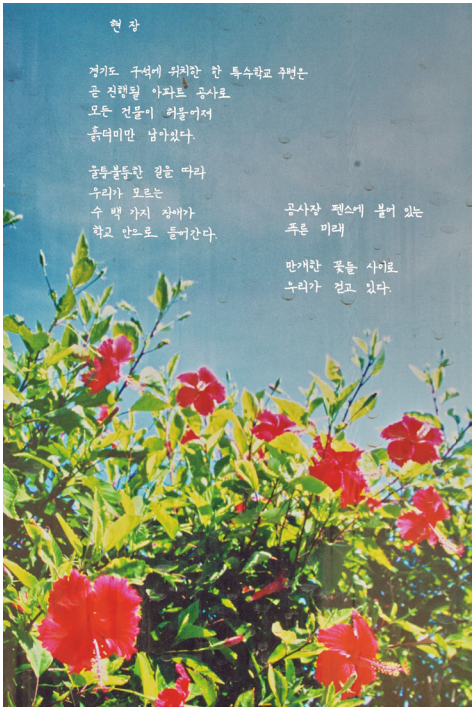 현장
경기도 구석에 위치한 한 특수학교 주변은
곧 진행될 아파트 공사로
모든 건물이 허물어져
흙더미만 남아있다.
울퉁불퉁한 길을 따라
우리가 모르는
수 백 가지 장애가
학교 안으로 들어간다.
공사장 펜스에 붙어 있는
푸른 미래
만개한 꽃들 사이로
우리가 걷고 있다.